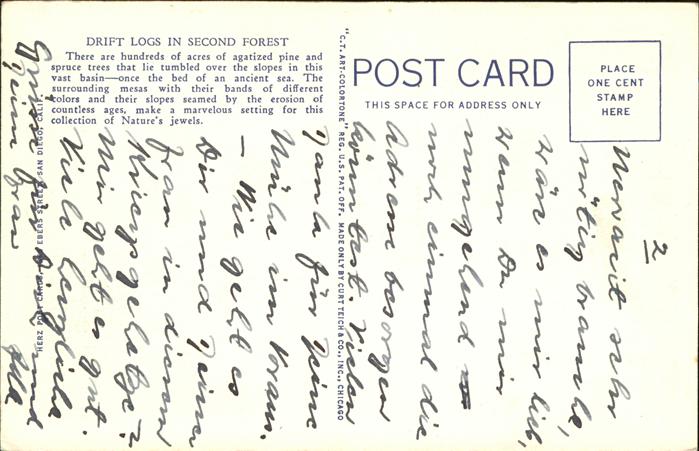 DRIFT LOGS IN SECOND FOREST
There are hundreds of acres of agatized pine and
spruce trees that lie tumbled over the slopes in this
vast basin—once the bed of an ancient sea. The
surrounding mesas with their bands of different
colors and their slopes seamed by the erosion of
countless ages, make a marvelous setting for this
collection of Nature's jewels.
HERZ POST CARDS, EBERS STREET, SAN DIEGO, CALIF.
"C.T. ART-COLORTONE" REG. U.S. PAT. OFF. MADE ONLY BY CURT TEICH & CO., INC., CHICAGO
POST CARD
THIS SPACE FOR ADDRESS ONLY
PLACE
ONE CENT
STAMP
HERE
2
sehr
nötig brauche,
wäre es mir lieb,
wenn Du mir
umgehend
noch einmal die
Adresse besorgen
könntest. Vielen
Dank für Deine
Mühe im Voraus.
– Wie geht es
Dir und Deiner
Frau in diesem
Mir geht es gut.
Viele herzliche
Grüsse für Dich und
Deine Frau